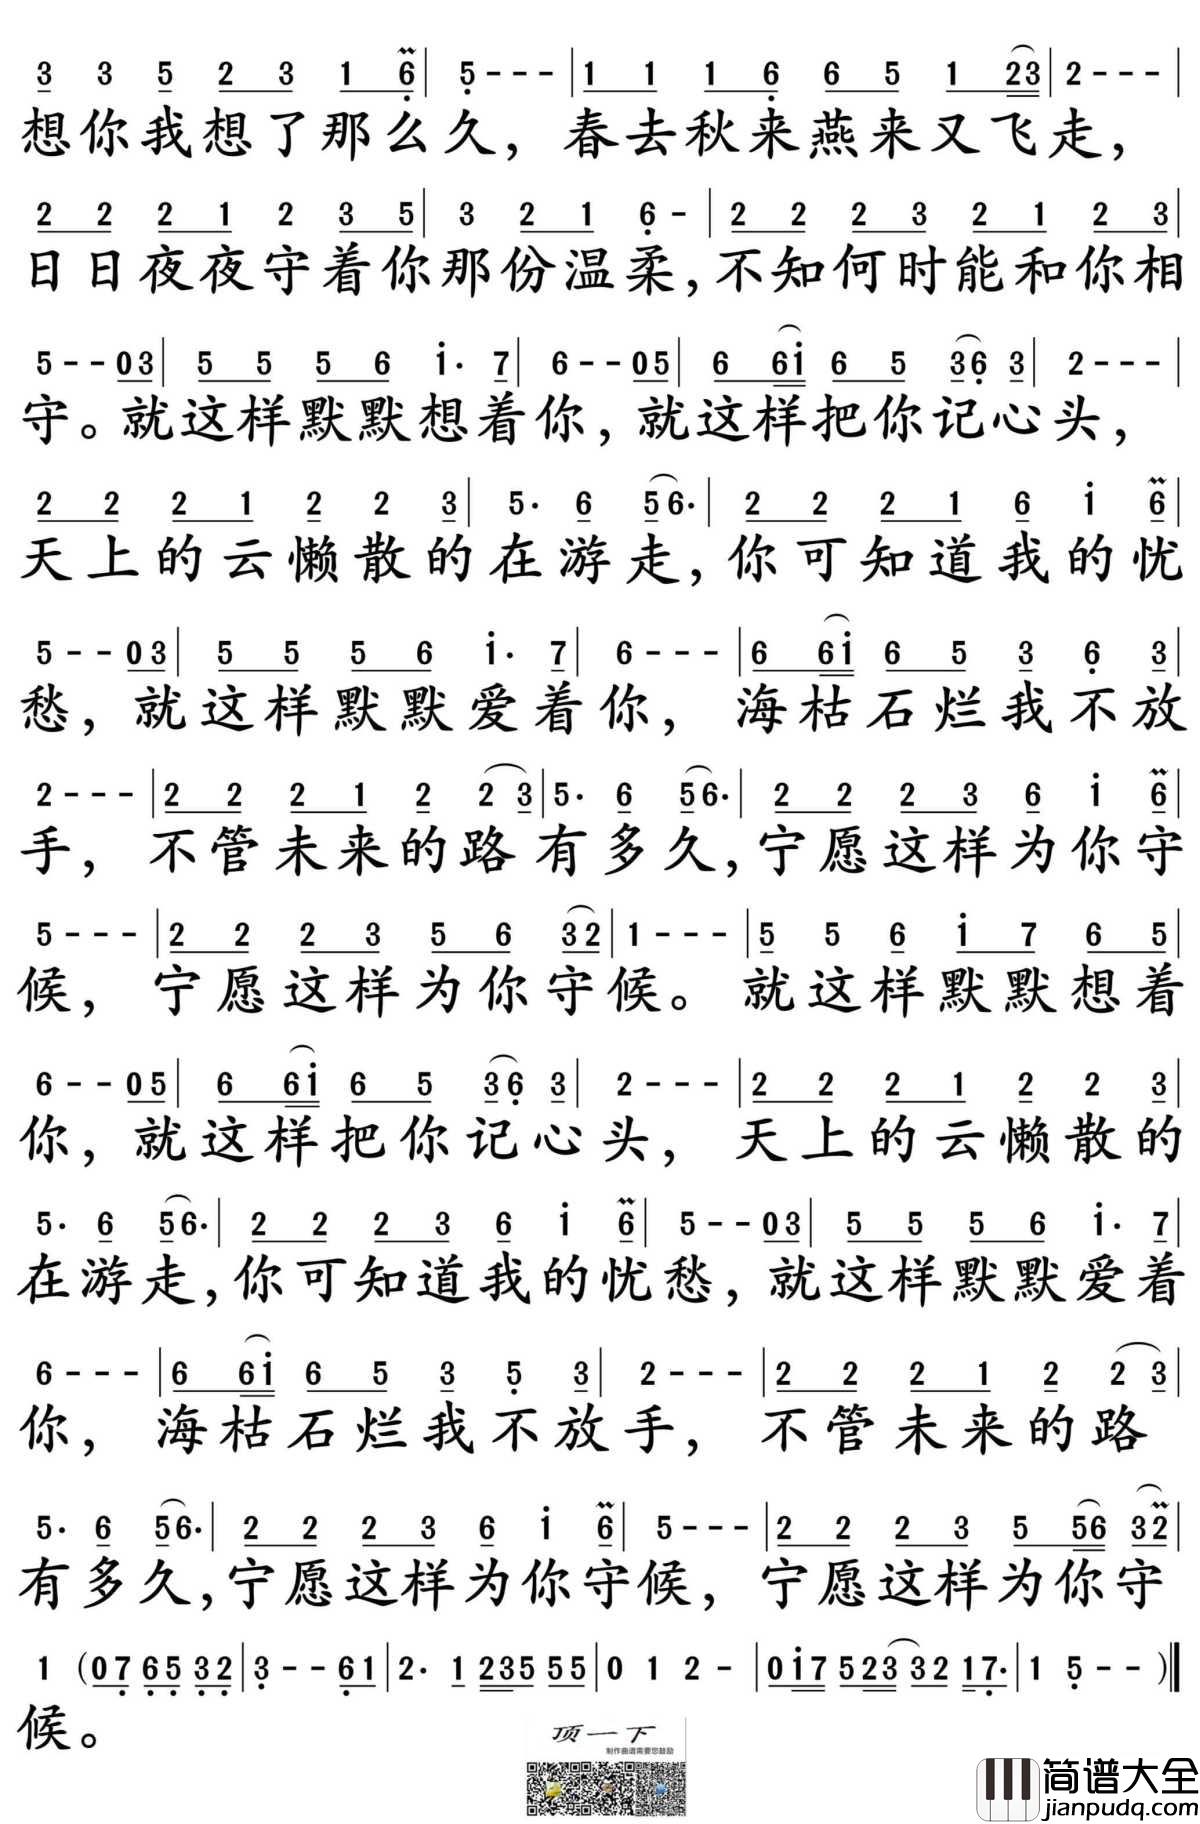 3 3 5 2 3 1 6| 5---|1 1 1 6 6 5 1 23|2---|
想你我想了那么久，春去秋来燕来又飞走，
2 2 2 1 2 3 5| 3 2 1 6-|2 2 2 3 2 1 2 3|
日日夜夜守着你那份温柔,不知何时能和你相
5--03|5 5 5 6 i· 7|6--05|6 6i 6 5 36 3|2---|
守。就这样默默想着你,就这样把你记心头,
2 2 2 1 2 2 3| 5· 6 56·|2 2 2 1 6 i 6|
天上的云懒散的在游走,你可知道我的忧
5--03|5 5 5 6 i· 7|6---|6 6i 6 5 3 6 3|
愁,就这样默默爱着你,海枯石烂我不放
2---|2 2 2 1 2 2 3|5· 6 56·|2 2 2 3 6 i 6|
手,不管未来的路有多久,宁愿这样为你守
5---|2 2 2 3 5 6 32|1---|5 5 6 i 7 6 5|
候,宁愿这样为你守候。就这样默默想着
6--05|6 6i 6 5 36 3|2---|2 2 2 1 2 2 3|
你,就这样把你记心头,天上的云懒散的
5· 6 56·|2 2 2 3 6 i 6|5--03|5 5 5 6 i· 7|
在游走,你可知道我的忧愁,就这样默默爱着
6---|6 6i 6 5 3 5 3|2---|2 2 2 1 2 2 3|
你,海枯石烂我不放手,不管未来的路
5· 6 56·|2 2 2 3 6 i 6|5---|2 2 2 3 5 56 32|
有多久,宁愿这样为你守候,宁愿这样为你守
1 (07 65 32|3--61|2· 1 235 55|0 1 2-|0i7 523 32 17·|1 5--)‖
候。
顶一下
制作曲谱需要您鼓励
简谱大全
jianpudq.com